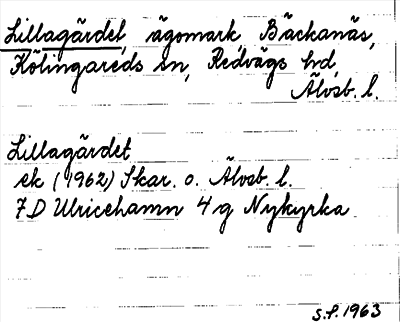 Lillagärdet ägomark Bäckanäs,
Kölingareds sn, Redvägs hd,
Älvsb. l.
Lillagärdet
ek (1962) Skar. o. Älvsb. l.
7D Ulricehamn 4g Nykyrka
S.P. 1963